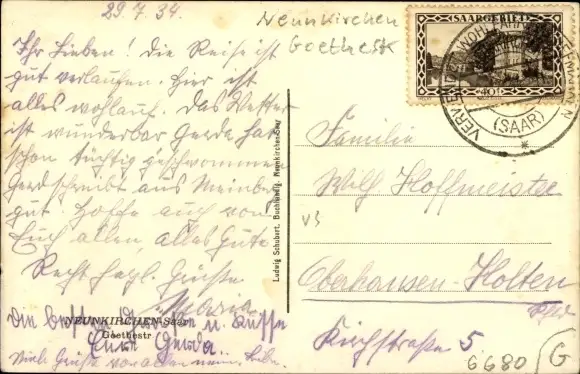 29.7.34.
Ihr Lieben! Die Reise ist
gut verlaufen. Hier ist
alles wohlauf. Das Wetter
ist wunderbar Gerda hat
schon tüchtig geschwommen
gut. Hoffe auch von
Euch allen, alles Gute
Recht herzl. Grüße
Maria
Die besten Grüße u. Küsse
Eure Gerda
Viele Grüße von allen
NEUNKIRCHEN-Saar
Goethestr
Ludwig Schubert, Buchhandlg. Neunkirchen-Saar
Neunkirchen
Goethestr
SAARGEBIET
(SAAR)
Familie
Wilh. Hoffmeister
V3
Oberhausen-Holten
Kirchstraße 5
6680
G